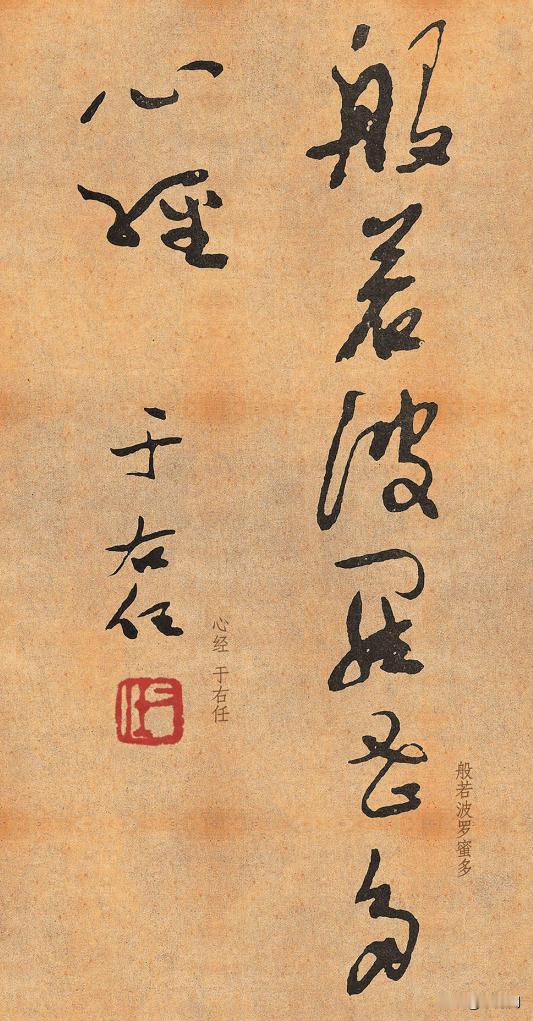 般若波羅蜜多
般若波罗蜜多
心經
于右任
心经 于右任